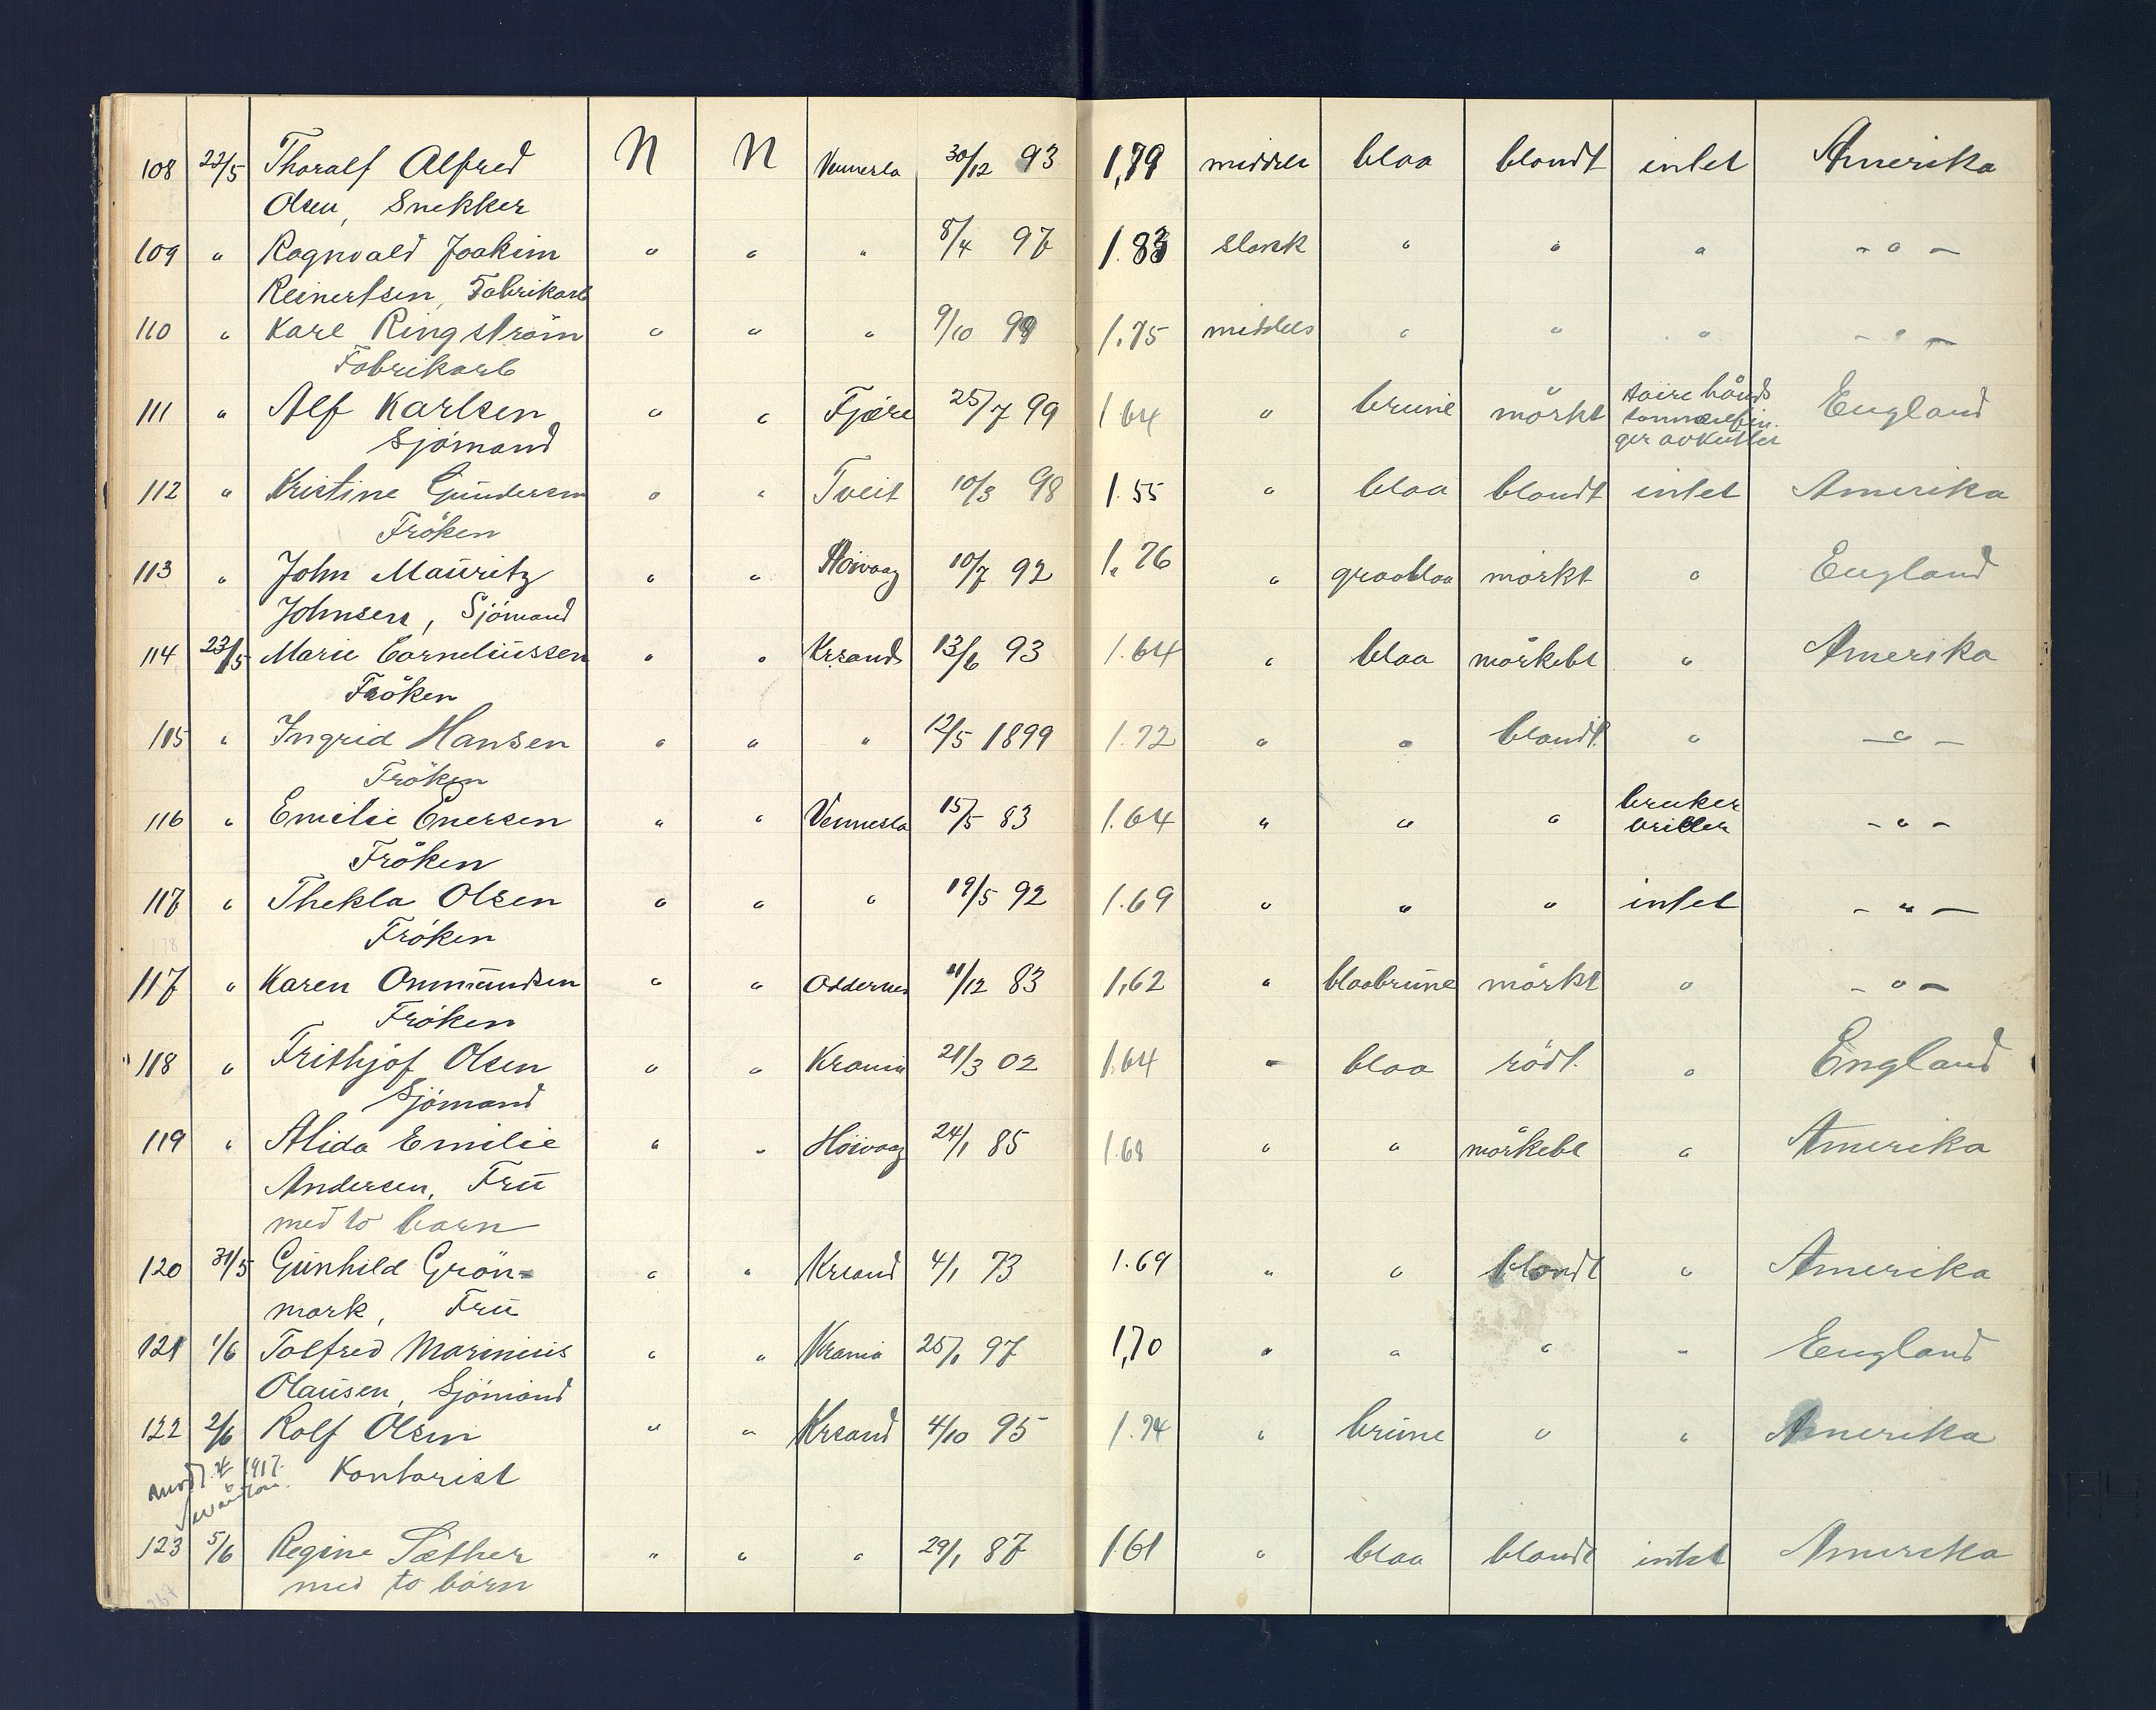 108 22/5 Thoralf Alfred N N Vennesla 30/12 93 1,79 middels blaa blondt intet Amerika
Olsen, Snekker
109 " Ragnvald Joakim " " " 8/4 97 1.83 slank " " " - " -
Reinertsen, Fabrikarb
110 " Karl Ringström " " " 9/10 99 1.75 middels " " " - " -
Fabrikarb
111 " Alf Karlsen " " Fjære 25/7 99 1 64 " brune mörkt höire hånds tommelfin. ger avkuttet England
Sjömand
112 " Kristine Gundersen " " Tveit 10/3 98 1.55 " blaa blondt intet Amerika
Fröken
113 " John Mauritz " " Höivaag 10/7 92 1.76 " graablaa mörkt " England
Johnsen, Sjömand
114 23/5 Marie Corneliussen " " Krsand 13/6 93 1.64 " blaa mörkebl " Amerika
Fröken
115 " Ingrid Hansen " " " 12/5 1899 1.72 " " blondt. " - " -
Fröken
116 " Emilie Enersen " " Vennesla 15/5 83 1.64 " " " bruker briller - " -
Fröken
117 " Thekla Olsen " " " 19/5 92 1.69 " " " intet - " -
Fröken
117 " Karen Ommundsen " " Oddernes 11/12 83 1,62 " blaabrune mörkt " - " -
Fröken
118 " Frithjof Olsen " " Krania 21/3 02 1.64 " blaa rödt. " England
Sjömand
119 " Alida Emilie " " Höivaag 24/1 85 1.68 " " mörkebl " Amerika
Andersen, Fru
med to barn
120 31/5 Gunhild Grön- " " Krsand 4/1 73 1.69 " " blondt " Amerika
mark, Fru
121 1/6 Tolfred Marinius " " Krania 25/1 97 1,70 " " " " England
Olausen, Sjömand
122 2/6 Rolf Olsen " " Krsand 4/10 95 1.74 " brune " " Amerika
1917. Kontorist
123 5/6 Regine Sæther " " " 29/1 87 1.61 " blaa blondt intet Amerika
med to börn